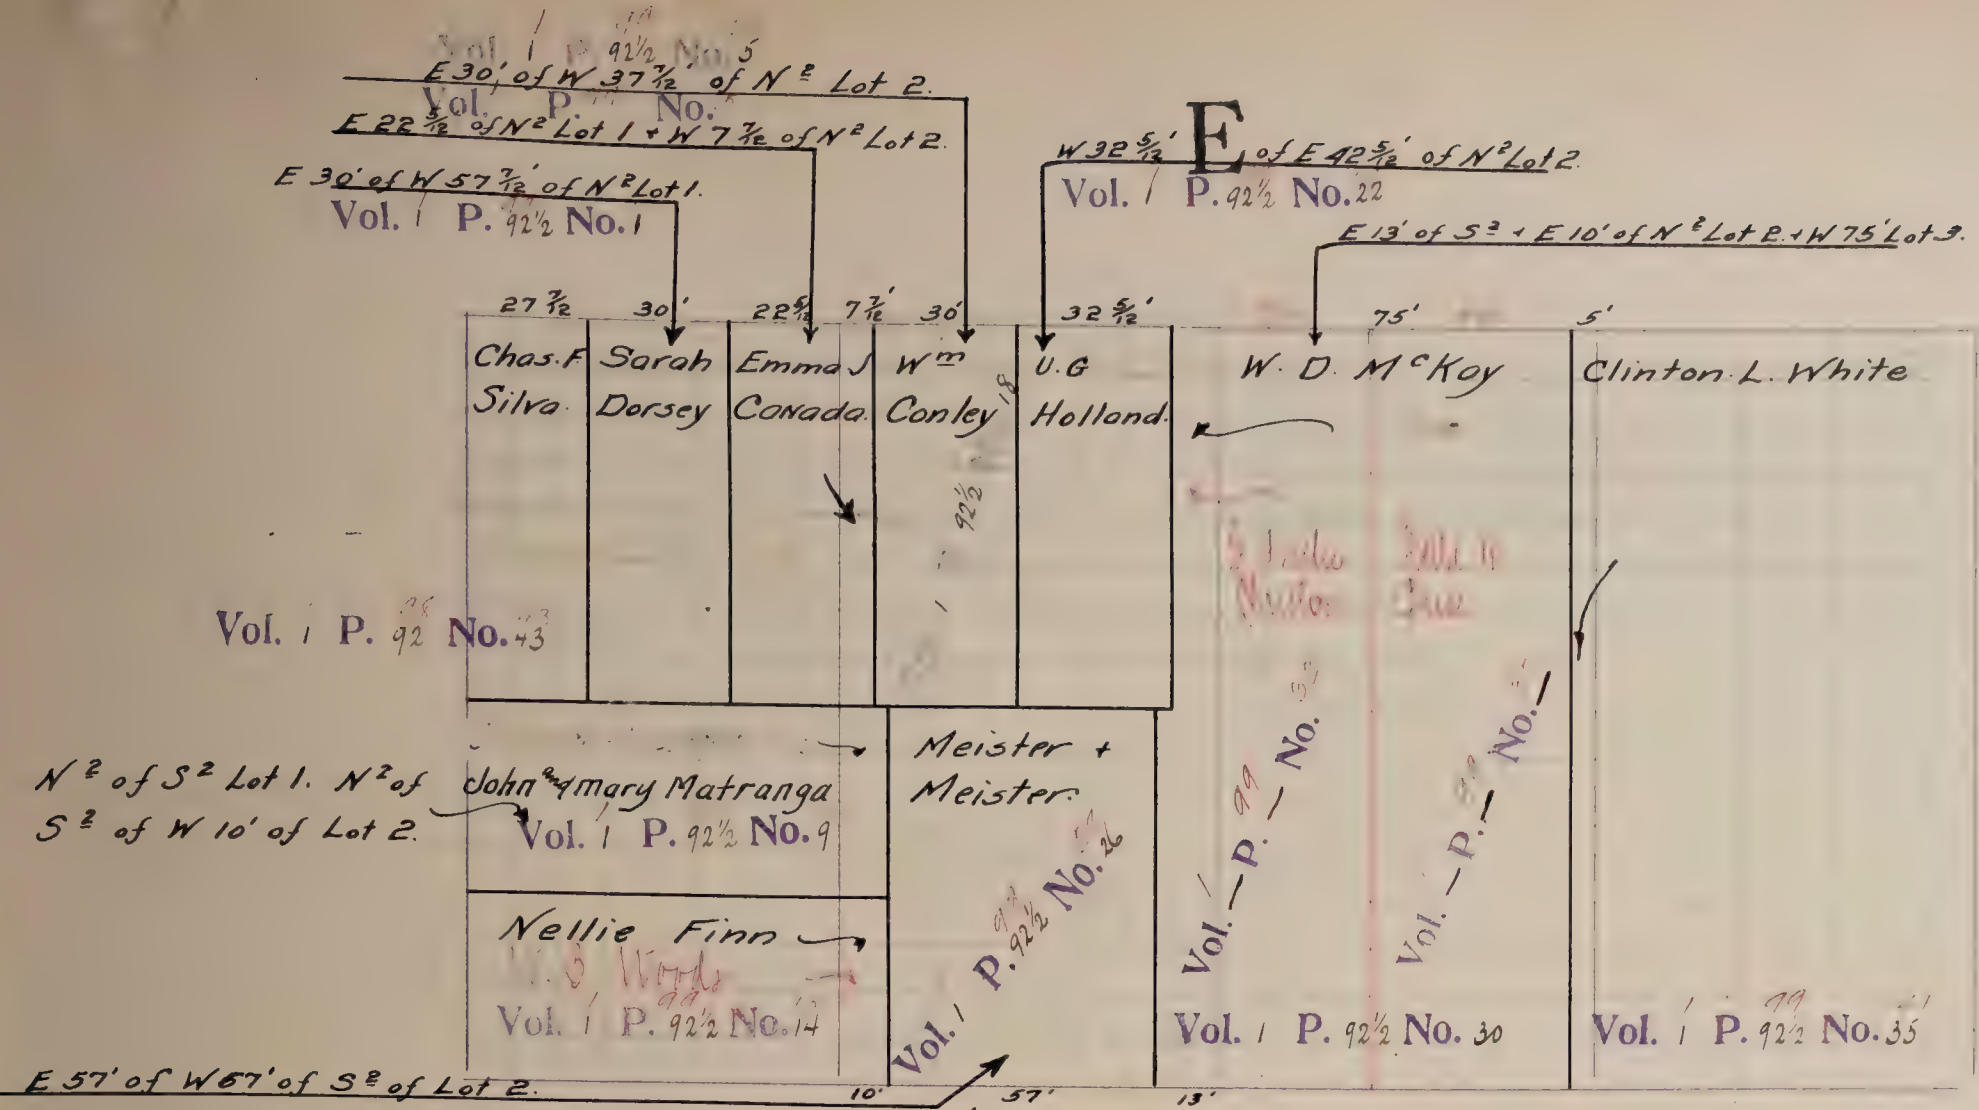 Vol. 1 P. 92½ No. 5
E 30' of W 37 7/12' of N² Lot 2.
Vol. P. No.
E 22 5/12 of N² Lot 1 + W 7 7/12 of N² Lot 2.
E 30' of W 57 7/12' of N² Lot 1.
Vol. 1 P. 92½ No. 1
E
W 32 5/12' of E 42 5/12' of N² Lot 2.
Vol. 1 P. 92½ No. 22
E 13' of S² + E 10' of N² Lot 2. + W 75' Lot 3.
27 7/12 30' 22 5/12 7 7/12' 30' 32 5/12' 75' 5'
Chas. F. Silva.
Sarah Dorsey
Emma J Canada.
Wm Conley
U. G Holland.
W. D. McKay
Clinton L. White
18
92½
1
Vol. 1 P. 92 No. 43
N² of S² Lot 1. N² of
S² of W 10' of Lot 2.
John and mary Matranga
Vol. 1 P. 92½ No. 9
Meister +
Meister.
Vol. 1 P. 92½ No. 26
Nellie Finn
W. Woods
Vol. 1 P. 99 92½ No. 14
Vol. 1 P. 99 No.
Vol. P. No.
Vol. 1 P. 92½ No. 30
Vol. 1 P. 99 92½ No. 35
E 57' of W 67' of S² of Lot 2.
10' 57' 13'